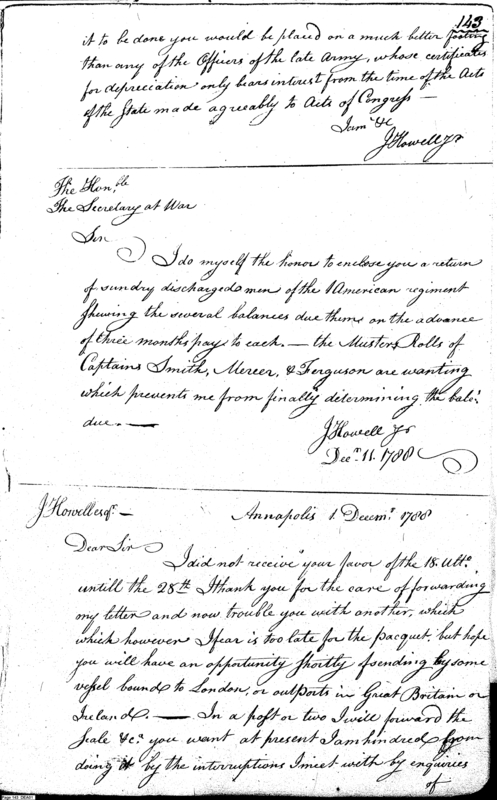 143
it to be done you would be placed on a much better footing
than any of the Officers of the late Army, whose certificates
for depreciation only bears interest from the time of the Acts
of the State made agreeably to Acts of Congress —
I am &c
J Howell Jr
The Honble
The Secretary at War
Sir
I do myself the honor to enclose you a return
of sundry discharged men of the 1 American regiment
shewing the several balances due them on the advance
of three months pay to each. — the Musters Rolls of
Captains Smith, Mercer, & Ferguson are wanting
which prevents me from finally determining the bale:
due. —
J Howell Jr
Decr. 11. 1788
J Howell esqr. — Annapolis 1. Decemr. 1788
Dear Sir
I did not receive your favor of the 18. Ulto.
untill the 28th I thank you for the care of forwarding
my letter and now trouble you with another, which
which however I fear is too late for the pacquet, but hope
you will have an opportunity shortly of sending by some
vessel bound to London, or outports in Great Britain or
Ireland. — In a post or two I will forward the
Scale &c. you want at present I am hindred from
doing it by the interruptions I meet with by enquiries
of